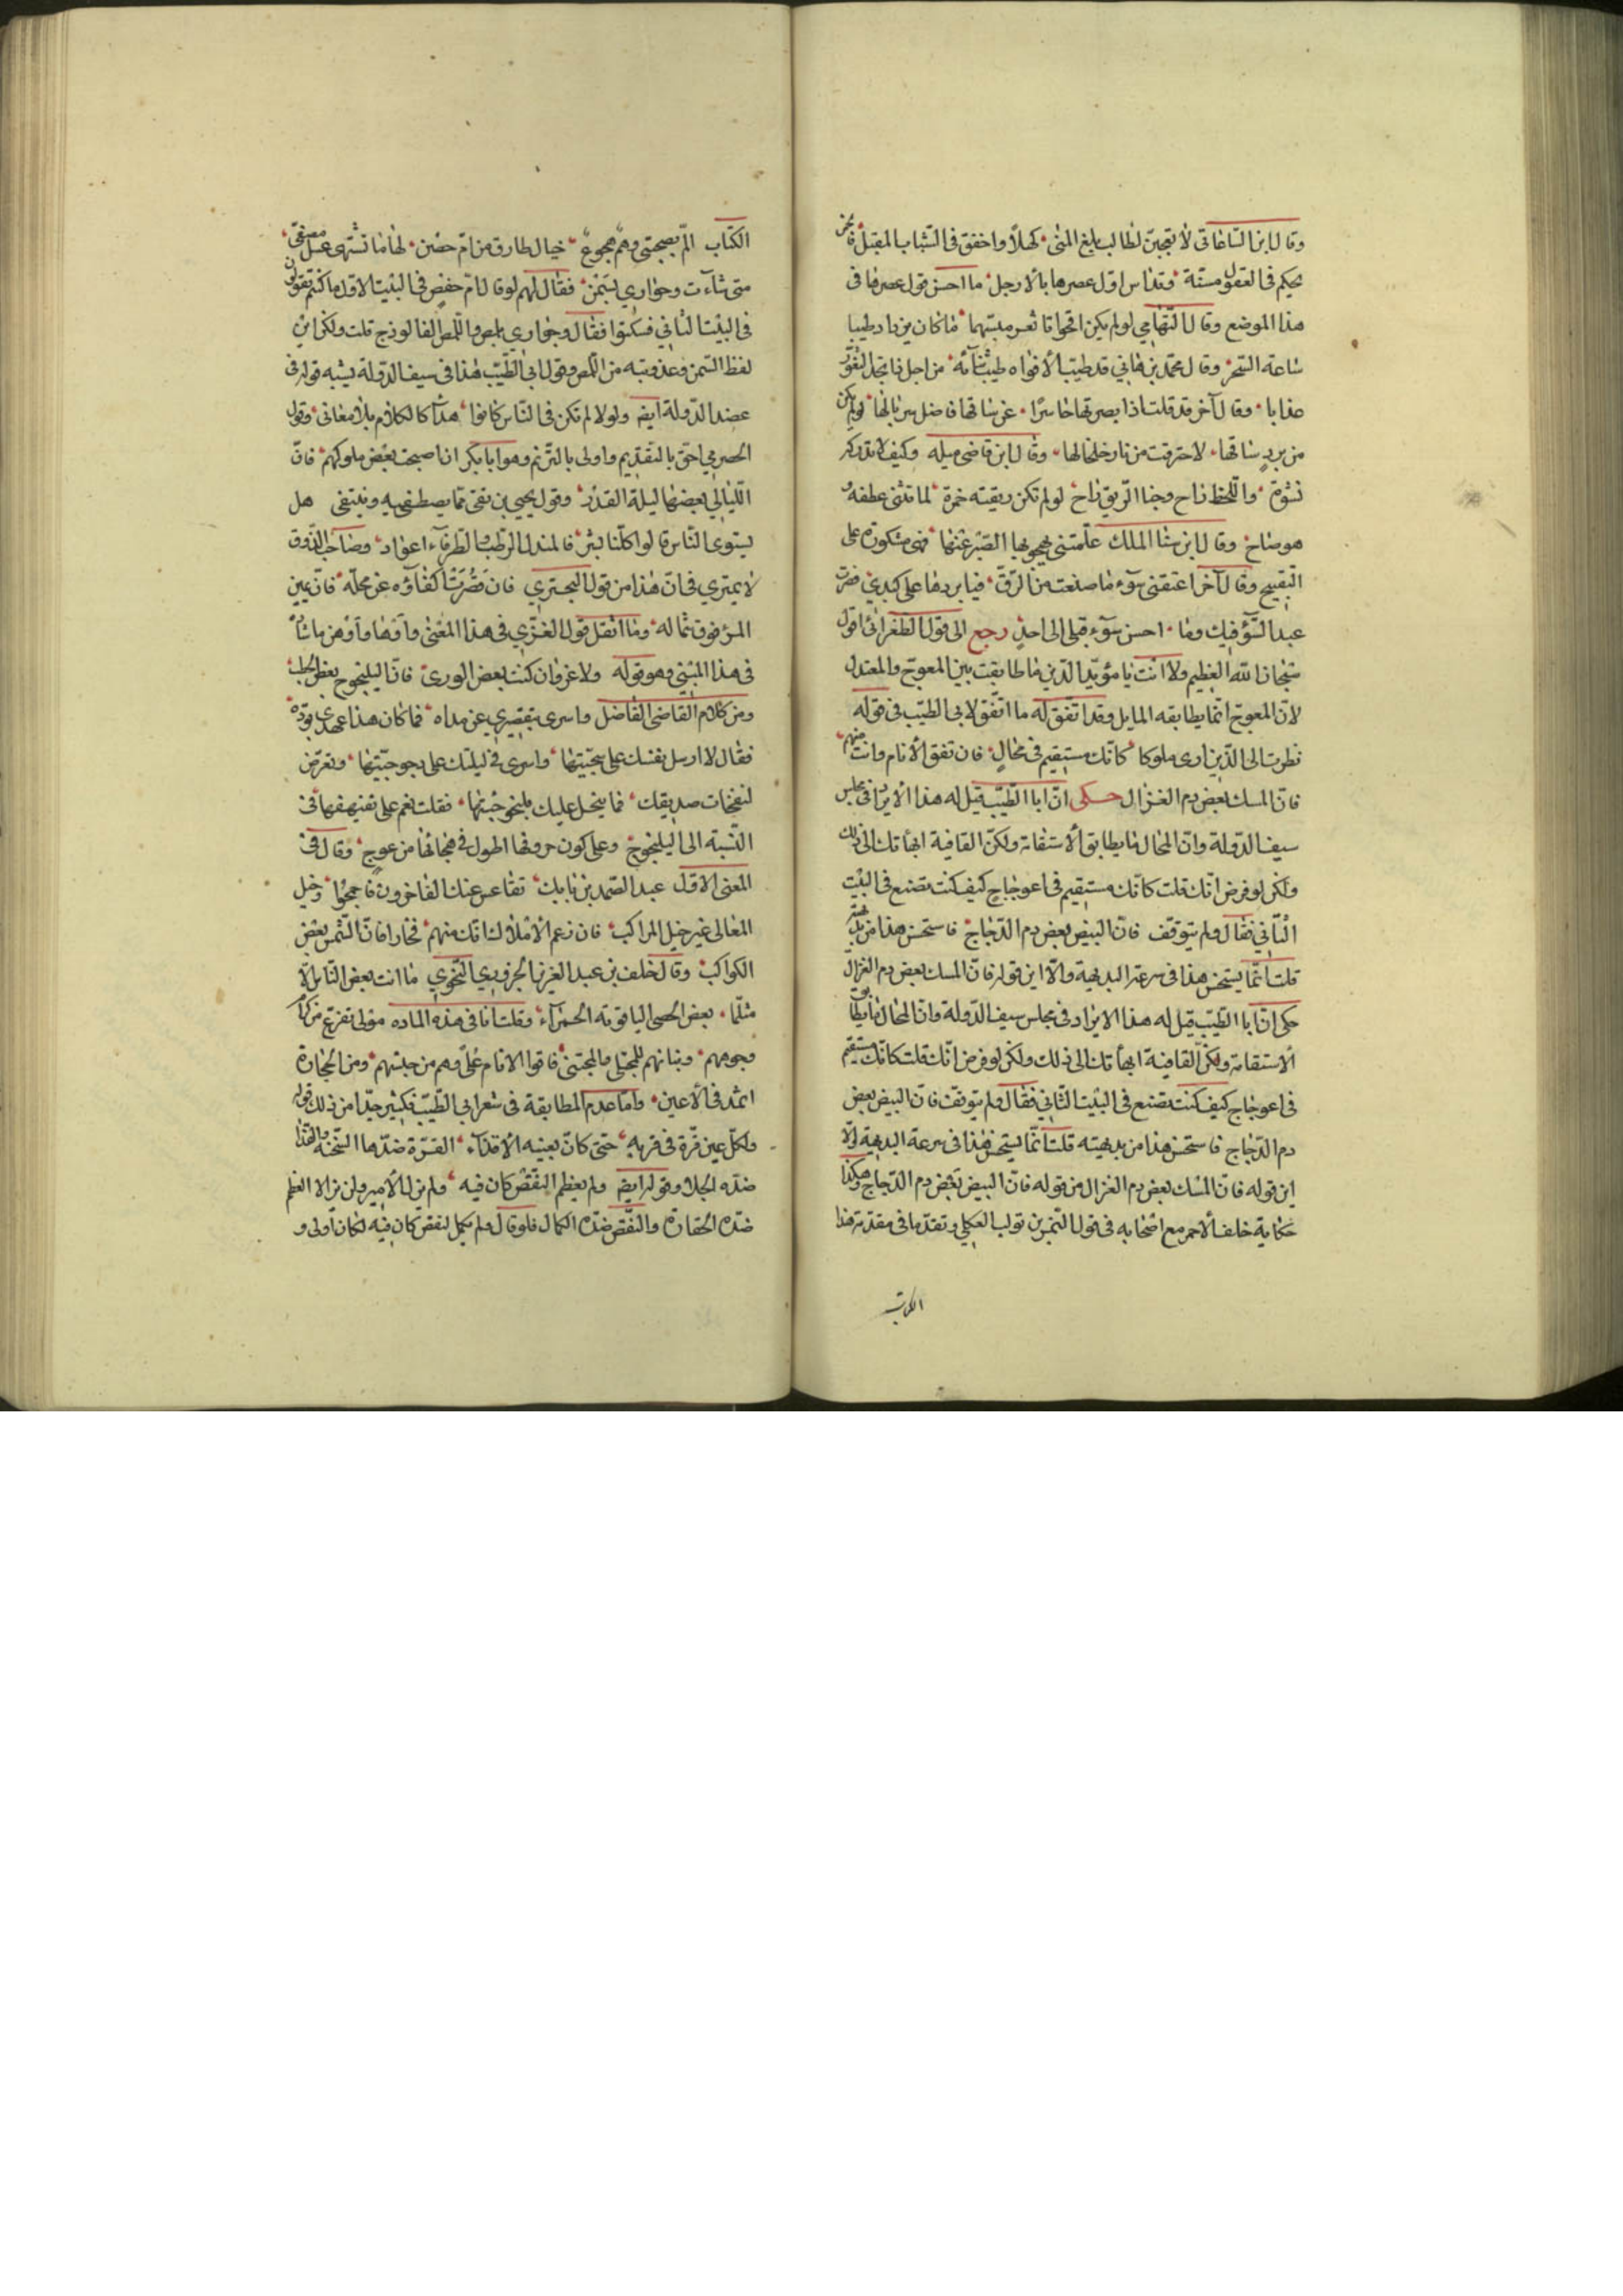 وقال ابن الساعاتي لا تعجبن لطالب بلغ المنى كهلا واخفق في الشباب المقبل فالخمر
تحكم في العقول مسنة وتداس اول عصرها بالارجل ما احسن قول عصرها في
هذا الموضع وقال التهامي لو لم يكن اقحوانا ثغر مبسمها ما كان يزداد طيبا
ساعة السحر وقال محمد بن هاني قد طيب الافواه طيب ثنائه من اجل ذا تجد الثغور
عذابا وقال آخر قد قلت اذا بصرتها حاسرا عن ساقها فاضل سربالها لو لم يكن
من برد ساقها لاحترقت من نار خلخالها وقال ابن قاضي ميله وكيف لا تدرك
نشوة واللحظ راح وجنا الريق راح لو لم تكن ريقته خمرة لما تثنى عطفه
هو صاح وقال ابن سنا الملك علمتني بهجرها الصبر عنها فهي مشكورة على
التقبيح وقال آخر اعتقني سوء ما صنعت من الرق فيا بردها على كبدي فصرت
عبدا للسوء فيك وما احسن سوء قبلي الى احد رجع الى قول الطغرائي اقول
سبحان الله العظيم ولا انت يا مؤيد الدين ما طابقت بين المعوج والمعتدل
لان المعوج انما يطابقه المايل وقد اتفق له ما اتفق لابي الطيب في قوله
نظرت الى الذين ارى ملوكا كانك مستقيم في محال فان تفق الانام وانت منهم
فان المسك بعض دم الغزال حكى ان ابا الطيب قيل له هذا الايراد في مجلس
سيف الدولة وان المحال ما يطابق الاستقامة ولكن القافية الجأتك الى ذلك
ولكن لو فرض انك قلت كانك مستقيم في اعوجاج كيف كنت تصنع في البيت
الثاني فقال ولم يتوقف فان البيض بعض دم الدجاج فاستحسن هذا من بديهته
قلت انما يستحسن هذا في سرعة البديهة والا اين قوله فان المسك بعض دم الغزال
حكى ان ابا الطيب قيل له هذا الايراد في مجلس سيف الدولة وان المحال ما يطابق
الاستقامة ولكن القافية الجأتك الى ذلك ولكن لو فرض انك قلت كانك مستقيم
في اعوجاج كيف كنت تصنع في البيت الثاني فقال ولم يتوقف فان البيض بعض
دم الدجاج فاستحسن هذا من بديهته قلت انما يستحسن هذا في سرعة البديهة والا
اين قوله فان المسك بعض دم الغزال من قوله فان البيض بعض دم الدجاج وهكذا
حكاية خلف الاحمر مع اصحابه في قول النمر بن تولب العكلي وتقدما في مقدمة هذا
الكتاب
الكتاب الم بصحبتي وهم هجوع خيال طارق من ام حصن لها ما تشتهى عسل مصفى
متى شاءت وحوارى بسمن فقال لهم لو قال ام حفص في البيت الاول ما كنتم تقولون
في البيت الثاني فسكتوا فقال وحوارى بلمص واللمص الفالوذج قلت ولكن اين
لفظ السمن وعذوبته من اللمص وقول ابي الطيب هذا في سيف الدولة يشبه قوله في
عضد الدولة ايضا ولولا لم تكن في الناس كانوا هذآ كالكلام بلا معانى وقول
الحصري احق بالتقديم واولى بالترنم وهو ابا بكر ان اصبحت بعض ملوكهم فان
الليالي بعضها ليلة القدر وقول يحيى بن تقى مما يصطفيه وينتقى هل
يستوى الناس قالوا كلنا بشر فالمندل الرطب والطرفاء اعواد وصاحب الذوق
لا يمترى في ان هذا من قول البحتري فان قصرت اكفاؤه عن محله فان يمين
المرء فوق شماله وما اثقل قول الغزي في هذا المعنى
في هذا المبنى وهو قوله ولا غرو ان كنت بعض الورى فان اليلنجوج بعض الحطب
ومن كلام القاضي الفاضل واسرى بتقصيري عن مداه فما كان هذا عهدي بوده
فقال لا ارسل نفسك على سجيتها واسرى في ليلتك على يجوجيتها وتعرض
لنفحات صديقك فما يبخل عليك بلنجوجيتها فقلت نعم على تفيهقها في
النسبة الى اليلنجوج وعلى كون حروفها اطول في هجائها من عوج وقال في
المعنى الاول عبد الصمد بن بابك تقاعس عنك الفاخرون فاحجموا وخيل
المعالى غير خيل المراكب فان زعم الاملاك انك منهم فخارا فان الشمس بعض
الكواكب وقال خلف بن عبد العزيز النحوي ما انت بعض الناس الا
مثلما بعض الحصى الياقوته الحمرآء وقلت انا في هذه الماده
وجوههم وبنانهم للمجتلى والمجتنى فاقوا الانام على وهم من جنسهم ومن الحجارة
اثمد في الاعين واما عدم المطابقة في شعر ابي الطيب فكثير جدا من ذلك قوله
ولكل عين قرة في قربه حتى كان بعينه الاقذاء القرة ضدها السخنة والقذا
ضده الجلا وقوله ايضا ولم يعظم لنقص كان فيه ولم يزل الامير ولن يزالا العظم
ضده الحقارة والنقص ضده الكمال فلو قال ولم يكمل لنقص كان فيه لكان اولى و